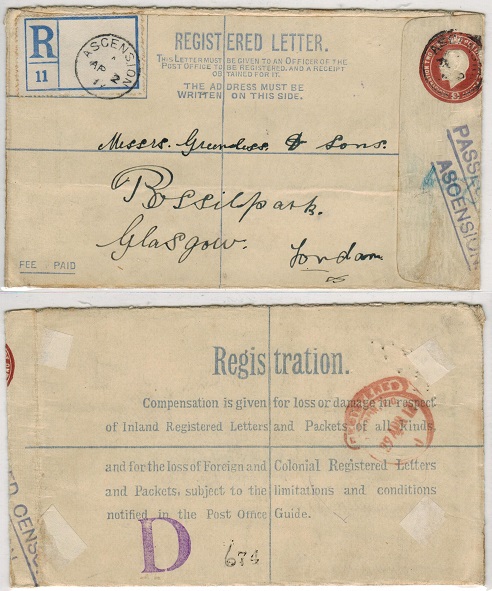 R
11
ASCENSION
AP 2
REGISTERED LETTER.
THIS LETTER MUST BE GIVEN TO AN OFFICER OF THE
POST OFFICE TO BE REGISTERED, AND A RECEIPT
OBTAINED FOR IT.
THE ADDRESS MUST BE
WRITTEN ON THIS SIDE.
Messrs. & Sons.
Possilpark.
Glasgow.
FEE PAID
PASSED
ASCENSION.
Registration.
Compensation is given for loss or damage in respect
of Inland Registered Letters and Packets of all kinds,
and for the loss of Foreign and Colonial Registered Letters
and Packets, subject to the limitations and conditions
notified in the Post Office Guide.
D
674